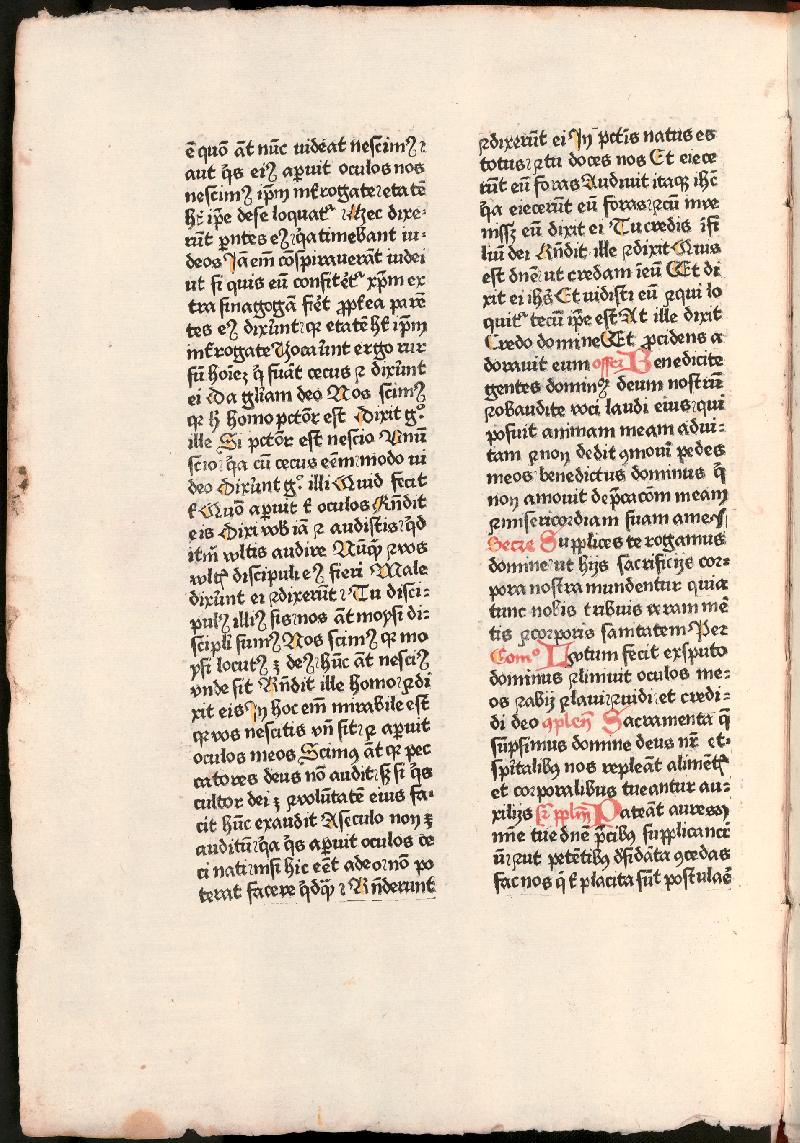 ē quo᷒ āt nūc uideat nescimꝰ ⁊
aut q̇s eiꝰ aꝑuit oculos nos
nescimꝰ ip̄m īt̄rogate etatē
hꝫ ip̄e de se loquat᷑ Hec dixe-
rūt ꝑntes eꝰ q̇a timebant iu-
deos Jā em̄ cōspirauerāt iudei
ut si quis eū confitet᷑ xp̄m ex
tra sinagogā fiet ꝓpt̄ea parē
tes eꝰ dixūnt qꝛ etatē hꝫ ip̄m
īt̄rogate Vocaūnt ergo rur
sū hoīeꝫ q̇ fuāt cecus ⁊ dixūnt
ei Da gl̄iam deo Nos scimꝰ
qꝛ h̄ homo pctōr est Dixit gͦ
ille Si pctōr est nescio Vnū
scio q̇a cū cecus eēm modo ui
deo Dixūnt gͦ illi Quid fecit
t̄ Quō aꝑuit t̄ oculos Rn̄dit
eis Dixi vob iā ⁊ audistis q̇d
itm̄ vltis audire Nūq̇ ⁊ vos
vltꝭ discipuli eꝰ fieri Male
dixūnt ei ⁊ dixerūt Tu disci-
pulꝰ illiꝰ sis nos āt moysi di-
scipli sumꝰ Nos scimꝰ qꝛ mo
ysi locutꝰ ꝫ deꝰ hūc āt nescimꝰ
vnde sit Rn̄dit ille homo ⁊ di
xit eis Jn hoc em̄ mirabile est
qꝛ vos nescitis vn̄ sit ⁊ aꝑuit
oculos meos Scimꝰ āt qꝛ pec
catores deus nō audit sꝫ si q̇s
cultor dei ꝫ ⁊ volūtatē eius fa-
cit hūc exaudit A seculo non ꝫ
auditū q̇a q̇s aꝑuit oculos ce
ci nati nisi hic eēt a deo nō po
terat facere q̇dq̄ꝫ Rn̄derunt
⁊ dixerūt ei Jn pctīs natus es
totus ⁊ tu doces nos Et eiece
rūt eū foras Audiuit itaqꝫ ih̄c
q̇a eiecerūt eū foras ⁊ cū inue
nissꝫ eū dixit ei Tu credis ī fi
liū dei Rn̄dit ille ⁊ dixit Quis
est dn̄e ut credam ī eū Et di
xit ei ih̄s Et uidisti eū ⁊ qui lo
quit᷑ tecū ip̄e est At ille dixit
Credo domine Et ꝓcidens a
dorauit eum offer Benedicite
gentes dominꝫ deum nostrū
⁊ obaudite voci laudi eius qui
posuit animam meam ad ui-
tam ⁊ non dedit ꝯmoui pedes
meos benedictus dominus q̇
non amouit dep̄cacōm meam
⁊ misericordiam suam a me
Secre Supplices te rogamus
domine ut hijs sacrificijs cor-
pora nostra mundentur quia
tunc nobis tribuis veram mē
tis ⁊ corporis sanitatem Per
Comͦ Lutum fecit ex sputo
dominus ⁊ liniuit oculos me-
os ⁊ abij ⁊ laui ⁊ uidi et credi-
di deo ꝯplen̄ Sacramenta q̄
sūpsimus domine deus nr̄ et-
spītalibꝰ nos repleāt alimētꝭ
et corporalibus tueantur au-
xilijs Sꝛ pplm̄ Pateāt aures m̄
m̄e tue dn̄e p̄cibꝰ supplicancē
ū ⁊ ut petētibꝰ dsīdāta ꝯcedas
fac nos q̄ t̄ placita sūt postulaē